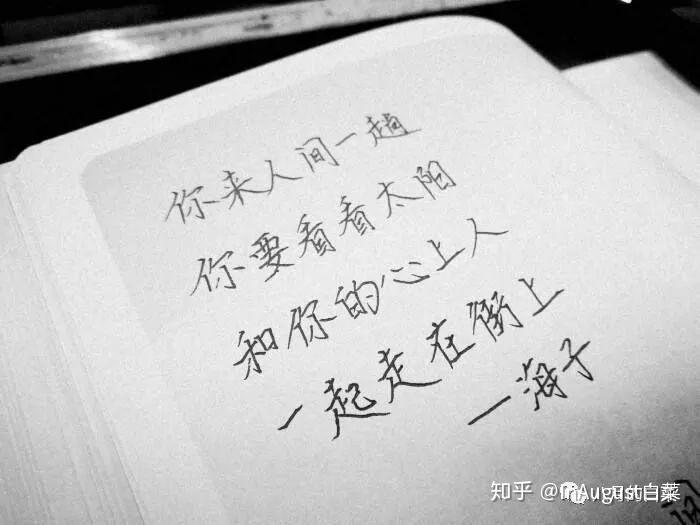 你来人间一趟
你要看看太阳
和你的心上人
一起走在街上
一海子
知乎 @August白菜